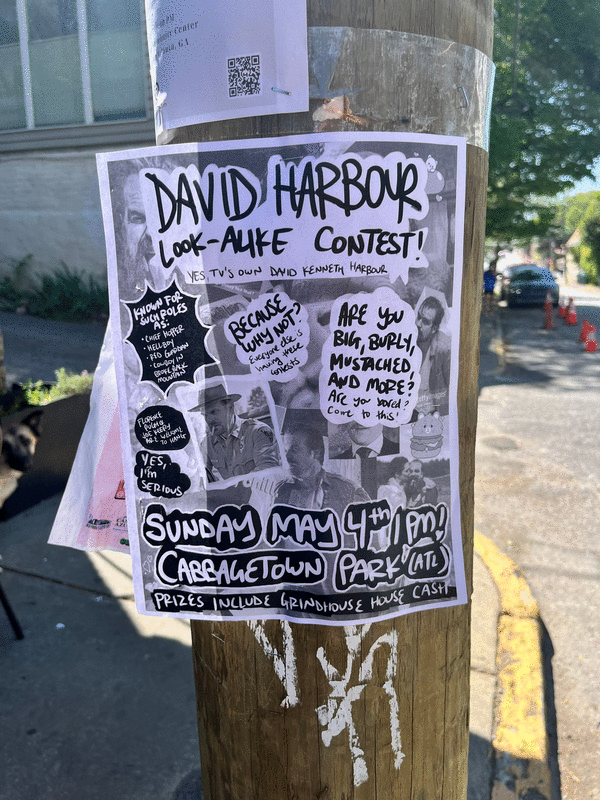 PM
Center
, GA
DAVID HARBOUR
LOOK-ALIKE CONTEST!
YES, TV'S OWN DAVID KENNETH HARBOUR
KNOWN FOR
SUCH ROLES
AS:
• CHIEF HOPPER
• HELLBOY
• RED GUARDIAN
• COWBOY IN
BROKE BACK
MOUNTAIN
BECAUSE
WHY NOT?
Everyone else is
having these
contests
ARE YOU
BIG, BURLY,
MUSTACHED,
AND MORE?
Are you bored?
Come to this!
FLORENCE
PUGH &
JOE KEERY
ARE WELCOME
TO HANG
YES,
I'M
SERIOUS
SUNDAY MAY 4th 1PM!
CABBAGETOWN PARK (ATL)
PRIZES INCLUDE GRINDHOUSE HOUSE CASH